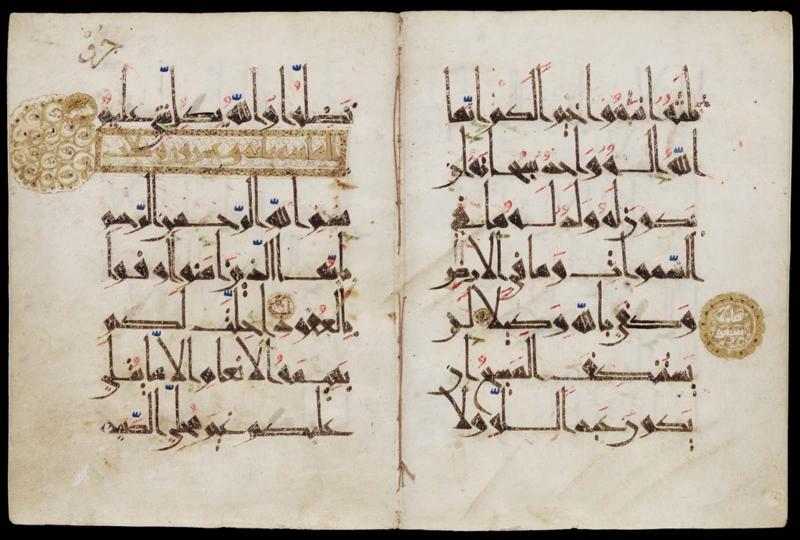 ثلثة انتهوا خيرا لكم انما
الله اله واحد سبحانه ان
يكون له ولد له ما في
السموات وما في الارض
وكفى بالله وكيلا لن
يستنكف المسيح ان
يكون عبدا لله ولا
مائة وسبعون
تضلوا والله بكل شي عليم
بسم الله الرحمن الرحيم
يايها الذين امنوا اوفوا
بالعقود احلت لكم
بهيمة الانعام الا ما يتلى
عليكم غير محلي الصيد